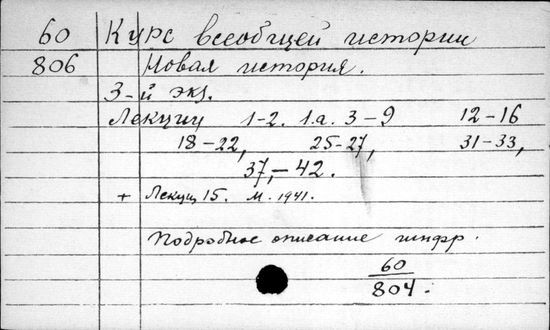 60 Курс всеобщей истории
806 Новая история.
3-й экз.
Лекции 1-2. 1.а. 3-9 12-16
18-22, 25-27, 31-33,
37,-42.
+ Лекц 15. М. 1941.
Подробное описание шифр.
60
804.